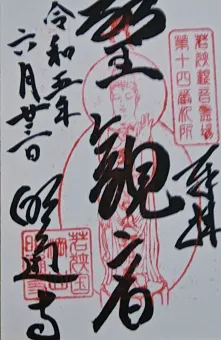 奉拝
若狭観音霊場
第十四番札所
聖観音
令和五年
六月廿三日
明通寺